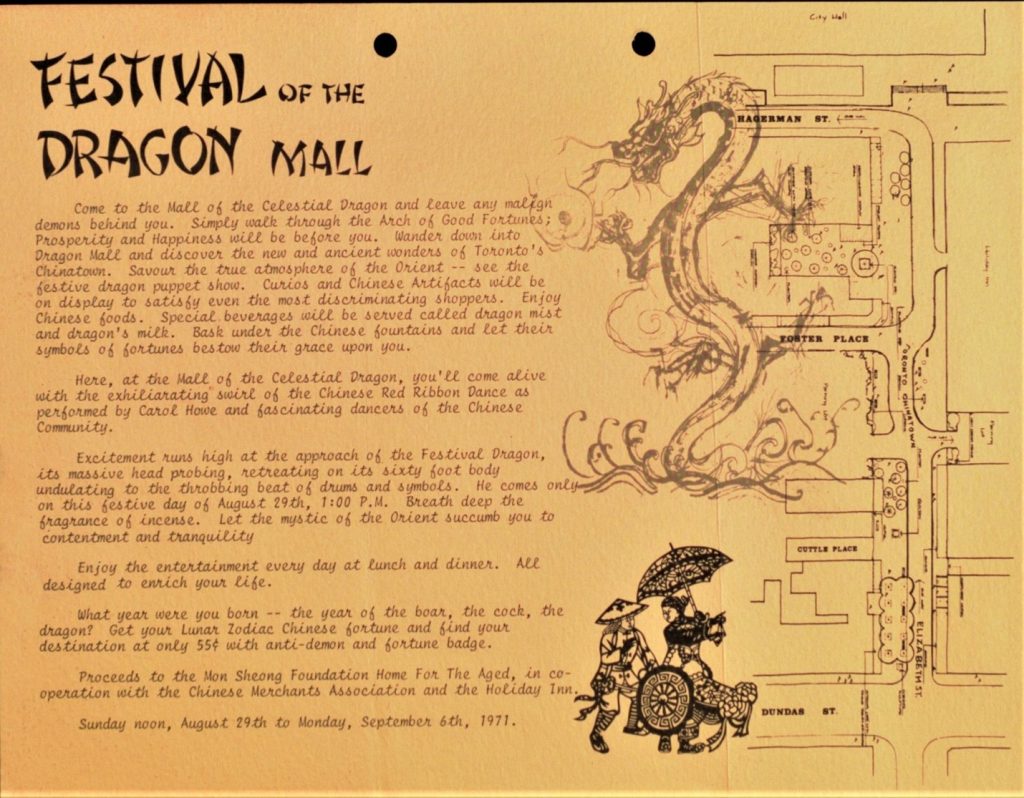 FESTIVAL OF THE
DRAGON MALL
Come to the Mall of the Celestial Dragon and leave any malign
demons behind you. Simply walk through the Arch of Good Fortunes;
Prosperity and Happiness will be before you. Wander down into
Dragon Mall and discover the new and ancient wonders of Toronto's
Chinatown. Savour the true atmosphere of the Orient -- see the
festive dragon puppet show. Curios and Chinese Artifacts will be
on display to satisfy even the most discriminating shoppers. Enjoy
Chinese foods. Special beverages will be served called dragon mist
and dragon's milk. Bask under the Chinese fountains and let their
symbols of fortunes bestow their grace upon you.
Here, at the Mall of the Celestial Dragon, you'll come alive
with the exhiliarating swirl of the Chinese Red Ribbon Dance as
performed by Carol Howe and fascinating dancers of the Chinese
Community.
Excitement runs high at the approach of the Festival Dragon,
its massive head probing, retreating on its sixty foot body
undulating to the throbbing beat of drums and symbols. He comes only
on this festive day of August 29th, 1:00 P.M. Breath deep the
fragrance of incense. Let the mystic of the Orient succumb you to
contentment and tranquility
Enjoy the entertainment every day at lunch and dinner. All
designed to enrich your life.
What year were you born -- the year of the boar, the cock, the
dragon? Get your Lunar Zodiac Chinese fortune and find your
destination at only 55¢ with anti-demon and fortune badge.
Proceeds to the Mon Sheong Foundation Home For The Aged, in co-
operation with the Chinese Merchants Association and the Holiday Inn.
Sunday noon, August 29th to Monday, September 6th, 1971.
City Hall
HAGERMAN ST.
FOSTER PLACE
TORONTO CHINATOWN
Parking Lot
Parking Lot
CUTTLE PLACE
ELIZABETH ST.
DUNDAS ST.